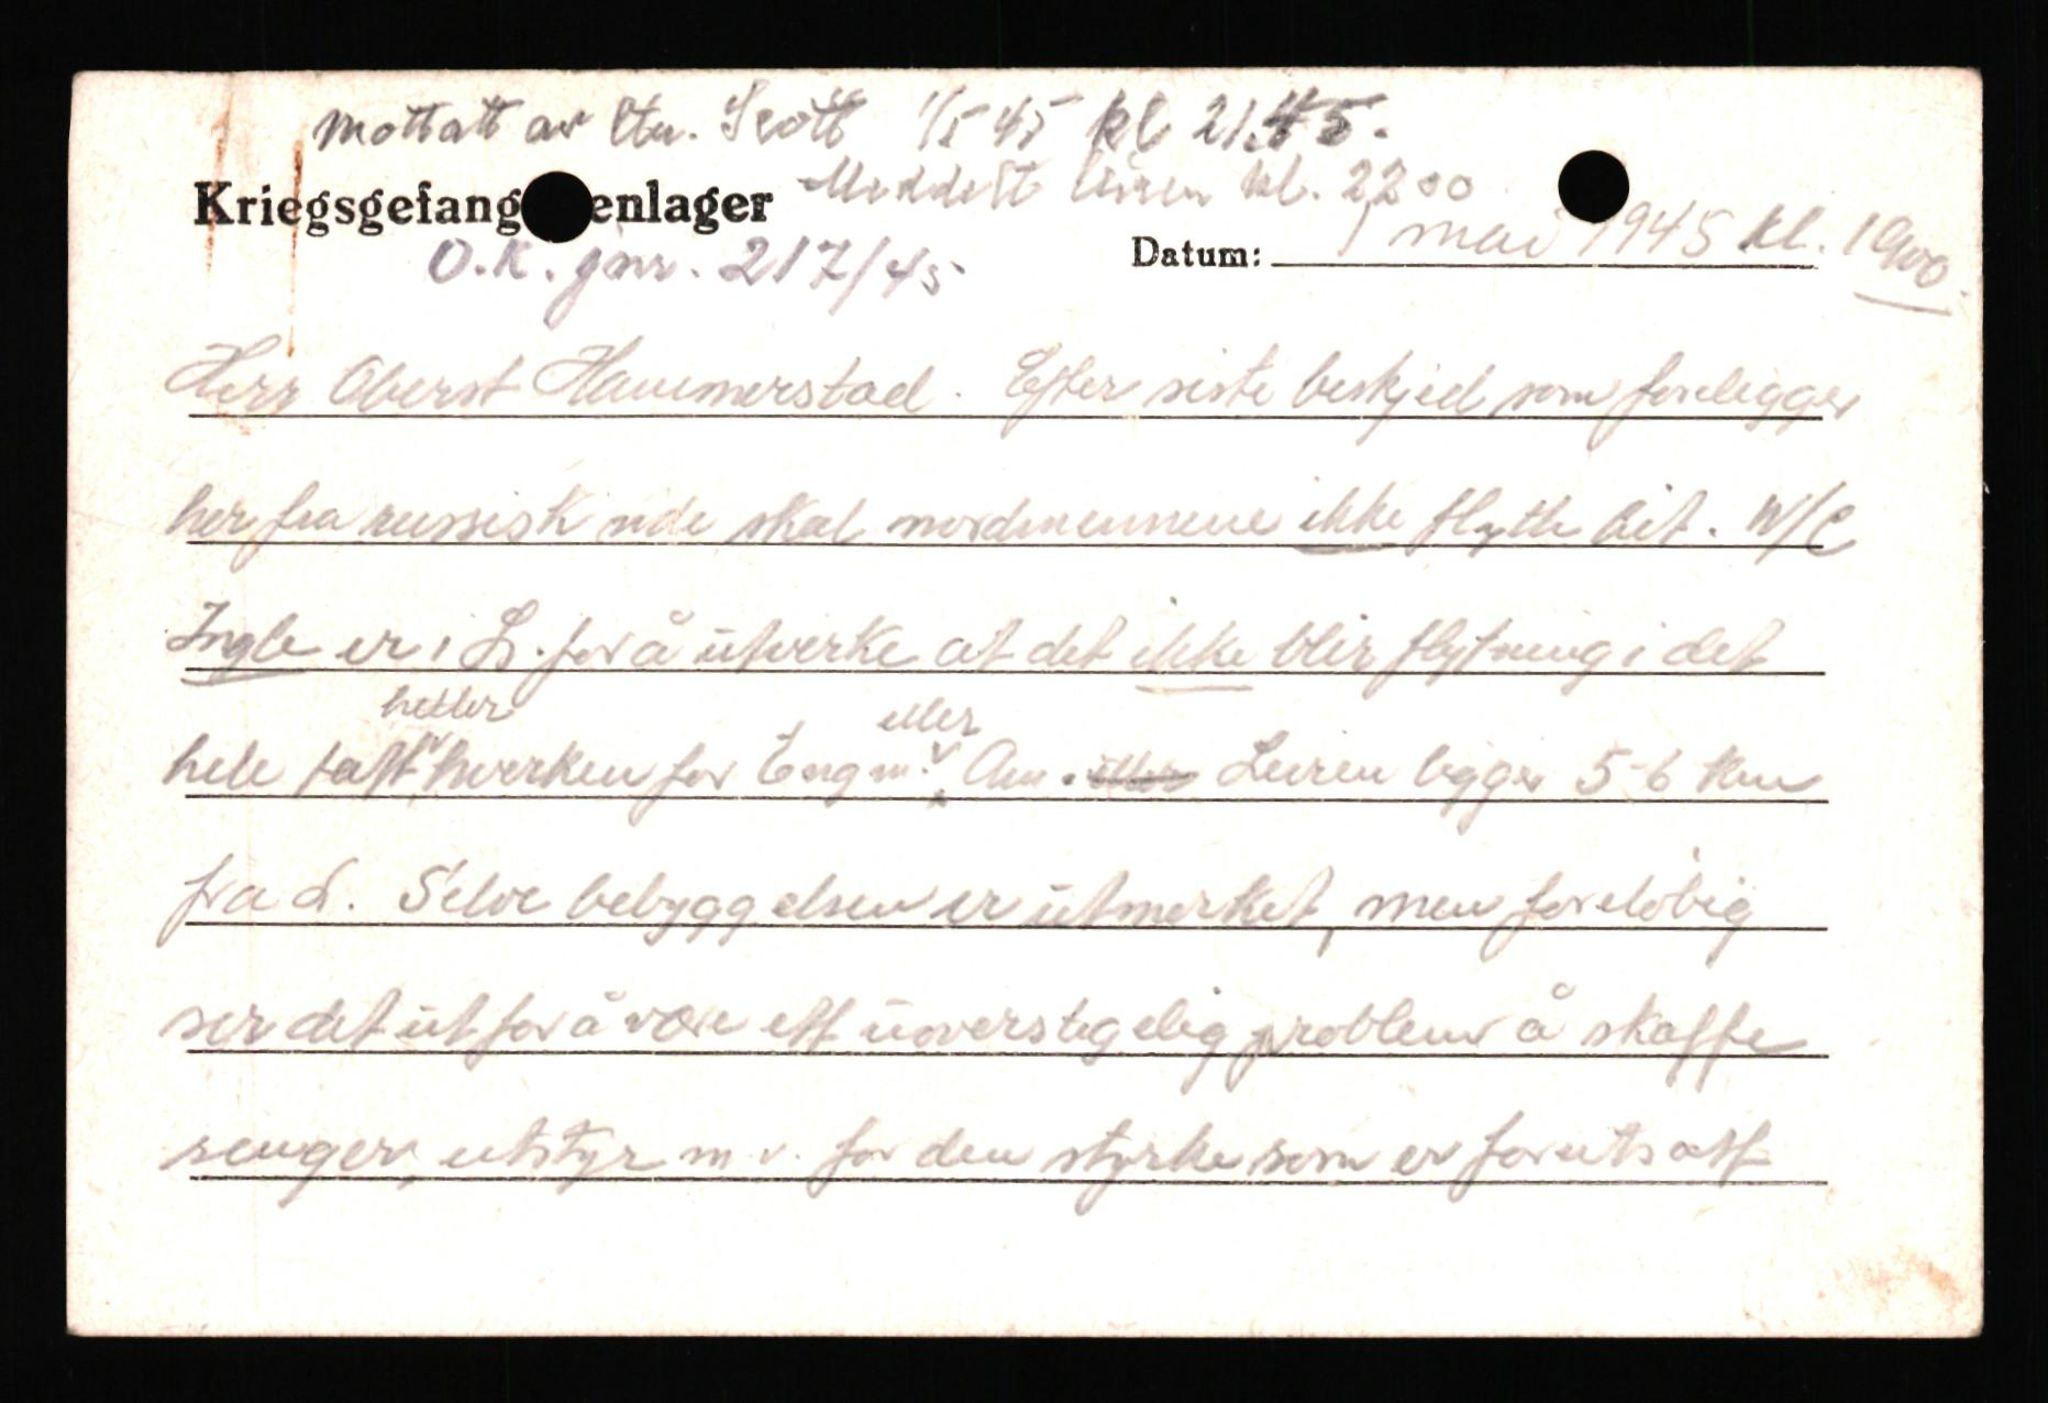 Mottatt av Ltn. Scott 1/5 45 kl 21.45.
Meddelt leiren kl. 2200
Kriegsgefangenenlager
O.K. jnr. 217/45
Datum: 1 mai 1945 kl. 1900.
Herr Oberst Hammerstad. Efter siste beskjed som foreligger
her fra russisk side skal nordmennene ikke flytte hit. W/C
Ingle er i L. for å utvirke at det ikke blir flytning i det
hele tatt hverken heller for Engm. eller Am. Leiren ligger 5-6 km
fra L. Selve bebyggelsen er utmerket, men foreløbig
ser det ut for å være ett uoverstigelig problem å skaffe
senger, utstyr m.v. for den styrke som er forutsatt